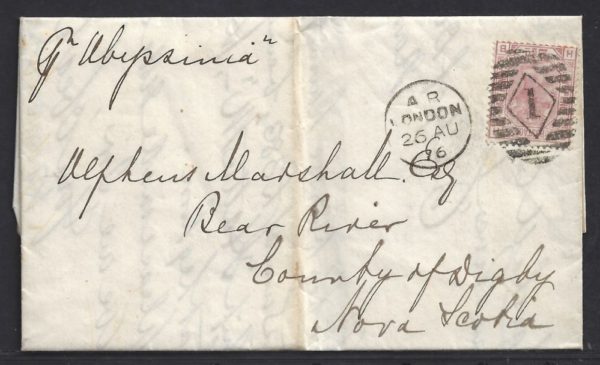 Pr "Abyssinia"
B H
1
A R
LONDON
26 AU
76
Alpheus Marshall Esq
Bear River
County of Digby
Nova Scotia